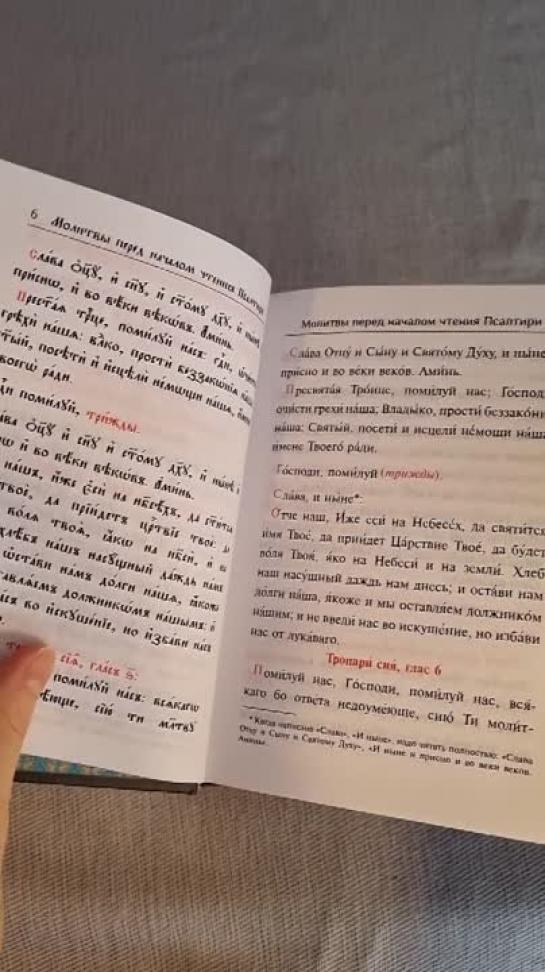 6 Молитвы перед началом чтения Псалтири
Сла́ва ѻ҆ц҃ꙋ̀, и҆ сн҃ꙋ, и҆ ст҃о́мꙋ дх҃ꙋ, и҆ ны́нѣ
при́снѡ, и҆ во вѣ́ки вѣкѡ́въ. А҆ми́нь.
Прест҃а́ѧ трⷪ҇це, поми́лꙋй на́съ: гдⷭ҇и,
грѣхѝ на́шѧ: влⷣко, простѝ беззакѡ́нїѧ
ст҃ы́й, посѣтѝ и҆ и҆сцѣлѝ не́мѡщи на́шѧ,
твоегѡ̀ ра́ди.
поми́лꙋй, три́жды.
ѻ҆ц҃ꙋ̀ и҆ сн҃ꙋ и҆ ст҃о́мꙋ дх҃ꙋ, и҆ ны́нѣ и҆
и҆ во вѣ́ки вѣкѡ́въ. А҆ми́нь.
на́шъ, и҆́же є҆сѝ на нб҃сѣ́хъ, да ст҃и́тсѧ
твоѐ, да прїи́детъ црⷭ҇твїе твоѐ: да
во́лѧ твоѧ̀, ꙗ҆́кѡ на нб҃сѝ, и҆ на
хлѣ́бъ на́шъ насꙋ́щный да́ждь на́мъ
ѡ҆ста́ви на́мъ до́лги на́шѧ, ꙗ҆́коже
ѡ҆ставлѧ́емъ должникѡ́мъ на́шымъ: и҆
на́съ во и҆скꙋше́нїе, но и҆зба́ви на́съ
сїѧ̑, гла́съ ѕ҃:
поми́лꙋй на́съ: всѧ́кагѡ
сїю́ ти мл҃твꙋ
Молитвы перед началом чтения Псалтири
Сла́ва Отцу́ и Сы́ну и Свято́му Ду́ху, и ны́не
при́сно и во ве́ки веко́в. Ами́нь.
Пресвята́я Тро́ице, поми́луй нас; Го́споди,
очи́сти грехи́ на́ша; Влады́ко, прости́ беззако́ни
на́ша; Святы́й, посети́ и исцели́ не́мощи на́ша
и́мене Твоего́ ра́ди.
Го́споди, поми́луй (три́жды).
Сла́ва, и ны́не*:
О́тче наш, И́же еси́ на Небесе́х, да святи́тся
и́мя Твое́, да прии́дет Ца́рствие Твое́, да бу́дет
во́ля Твоя́, я́ко на Небеси́ и на земли́. Хлеб
наш насу́щный даждь нам днесь; и оста́ви нам
до́лги на́ша, я́коже и мы оставля́ем должнико́м
на́шим; и не введи́ нас во искуше́ние, но изба́ви
нас от лука́ваго.
Тропари́ сия́, глас 6
Поми́луй нас, Го́споди, поми́луй нас, вся́-
каго бо отве́та недоуме́юще, сию́ Ти моли́т-
* Когда написано «Слава», «И ныне», надо читать полностью: «Слава
Отцу и Сыну и Святому Духу», «И ныне и присно и во веки веков.
Аминь».